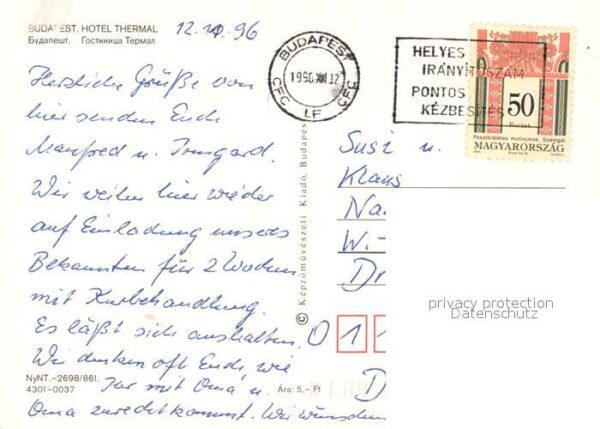 BUDAPEST. HOTEL THERMAL
Будапешт. Гостиница Термал
96
Herzliche Grüße von
hier senden Euch
Manfred u. Irmgard.
Wir weilen hier wieder
auf Einladung unseres
Bekannten für 2 Wochen
mit Kurbehandlung.
Es läßt sich aushalten.
Wir denken oft Euch, wie
Ihr mit Oma u.
Oma zurechtkommt. Wir wünschen
NyNT.–2698/861.
4301–0037
Ára: 5,– Ft
© Képzőművészeti Kiadó, Budapest
BUDAPEST
CFC LF CFC
HELYES
IRÁNYÍTÓSZÁM
PONTOS
KÉZBESÍTÉS
50
Forint
MAGYARORSZÁG
Susi u.
Klaus
Na
W.-
D
0 1 1
D
privacy protection
Datenschutz